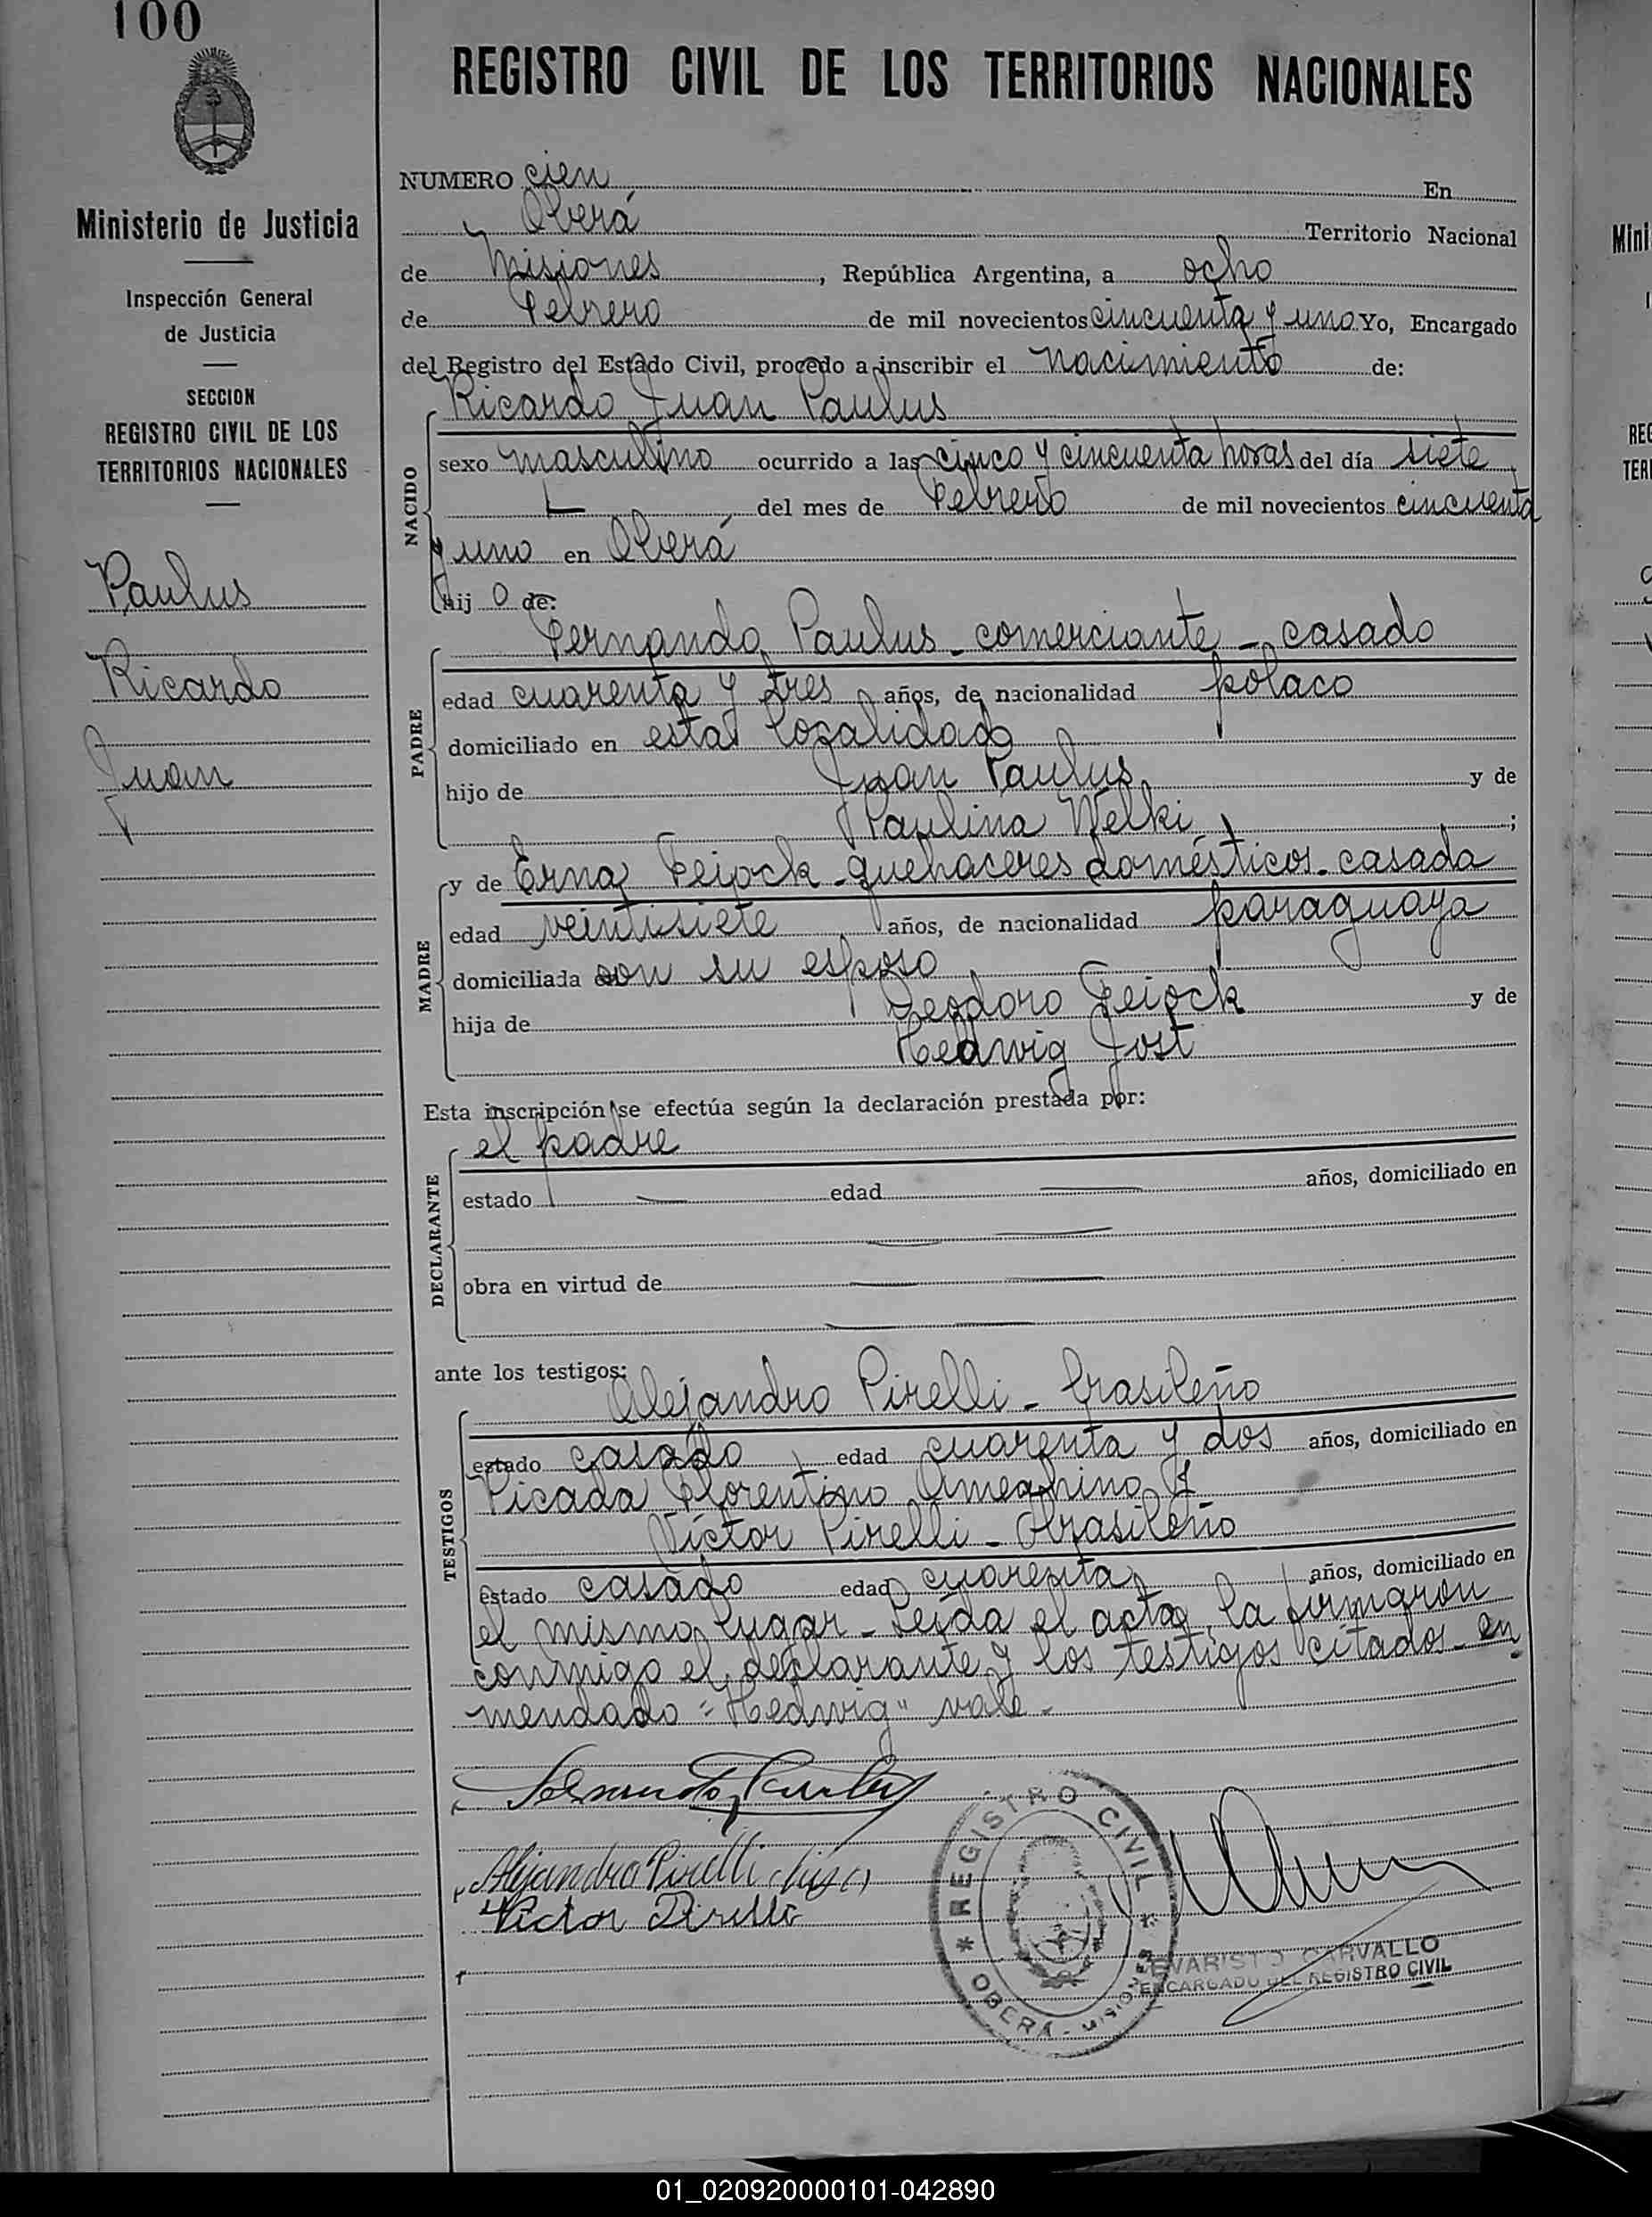 100
REGISTRO CIVIL DE LOS TERRITORIOS NACIONALES
Ministerio de Justicia
Inspección General
de Justicia
SECCION
REGISTRO CIVIL DE LOS
TERRITORIOS NACIONALES
Paulus
Ricardo
Juan
NUMERO cien En
Oberá Territorio Nacional
de Misiones, República Argentina, a ocho
de Febrero de mil novecientos cincuenta y uno Yo, Encargado
del Registro del Estado Civil, procedo a inscribir el nacimiento de:
NACIDO
Ricardo Juan Paulus
sexo masculino ocurrido a las cinco y cincuenta horas del día siete
del mes de Febrero de mil novecientos cincuenta
y uno en Oberá
hijo de:
PADRE
Fernando Paulus - comerciante - casado
edad cuarenta y tres años, de nacionalidad polaco
domiciliado en esta localidad
hijo de Juan Paulus y de
Paulina Welki ;
MADRE
y de Erna Feiock - quehaceres domésticos - casada
edad veintisiete años, de nacionalidad paraguaya
domiciliada con su esposo
hija de Teodoro Feiock y de
Hedwig Jost
Esta inscripción se efectúa según la declaración prestada por:
DECLARANTE
el padre
estado — edad — años, domiciliado en
— —
obra en virtud de — —
— —
ante los testigos:
TESTIGOS
Alejandro Pirelli - brasileño
estado casado edad cuarenta y dos años, domiciliado en
Picada Florentino Ameghino y
Víctor Pirelli - brasileño
estado casado edad cuarenta años, domiciliado en
el mismo lugar - Leída el acta, la firmaron
conmigo el declarante y los testigos citados - en
mendado = "Hedwig" vale -
Fernando Paulus
Alejandro Pirelli (hijo)
Victor Pirelli
REGISTRO CIVIL
* OBERA - MISIONES *
EVARISTO CARVALLO
ENCARGADO DEL REGISTRO CIVIL
Mini
I
REG
TERI
01_020920000101-042890